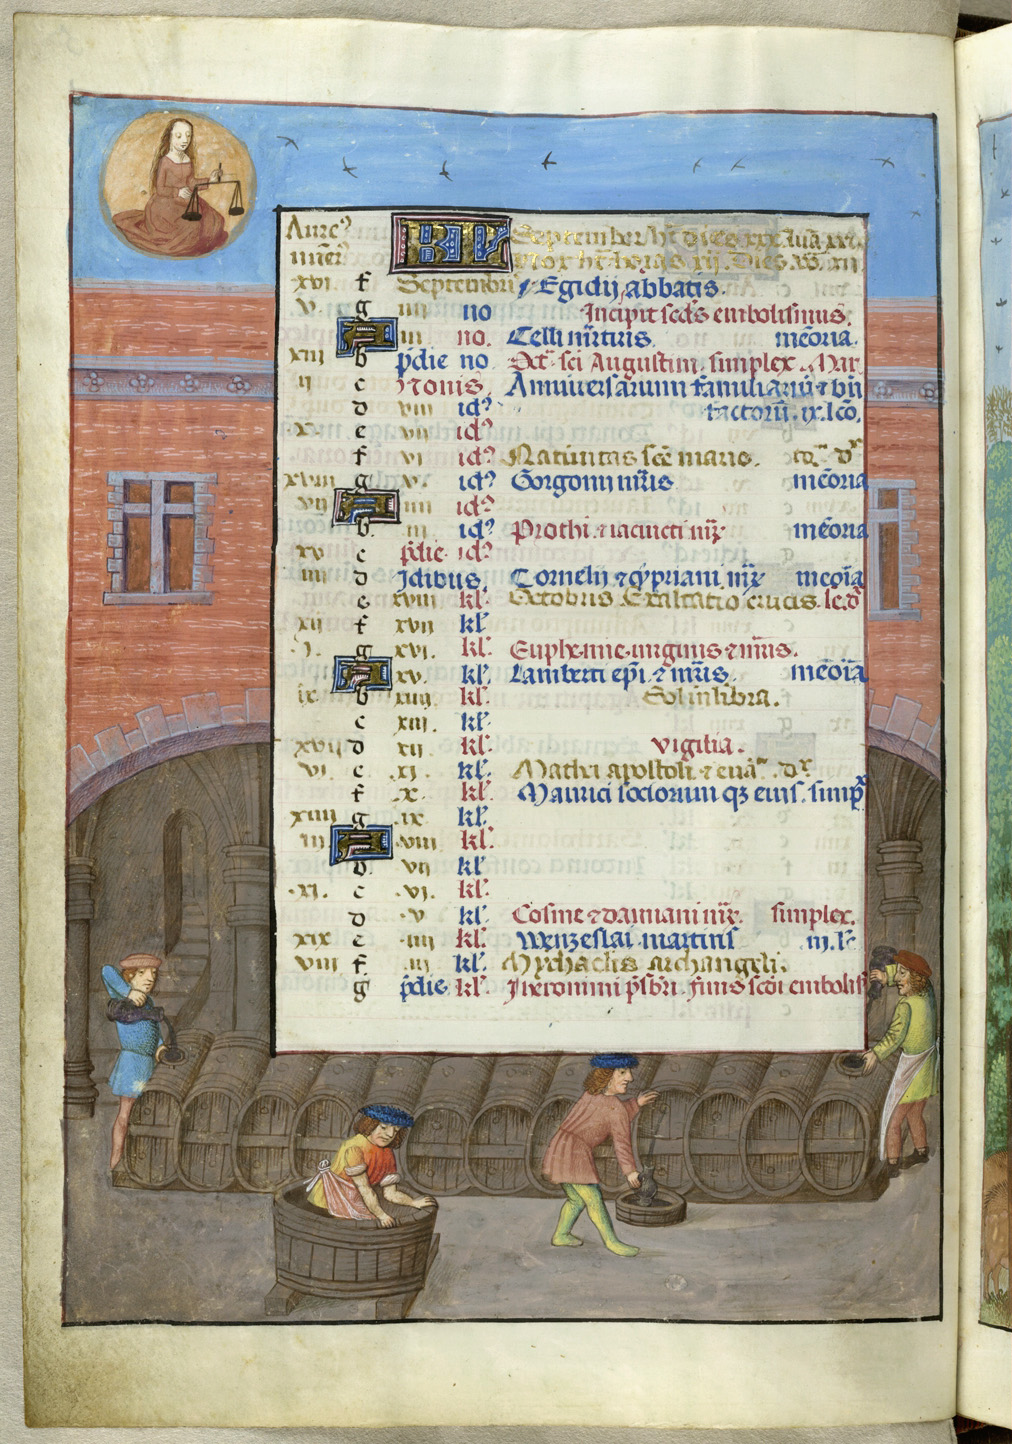 Aure⁹ KL September ht dies xxx luā xxx.
nūer⁹ Nox ht horas xii. Dies xii
xvi f Septembris Egidij abbatis.
v. g iiii no Incipit scd's embolismus.
A iii no. Celli m̄rtiris. mēoria.
xiii b p̄die no Oct̄ sci Augustini simplex.
ii c Nonis Anniversarium familiariū ⁊ bn̄
d viii id⁹ factorū. ix. lcō.
x. e vii id⁹
f vi id⁹ Natiuitas scē marie.
xviii g v. id⁹ Gorgonii m̄ris mēoria
vii A iiii id⁹
b. iii id⁹ Prothi ⁊ iacincti mr̄ mēoria
xv c p̄die id⁹
iiii d Idibus. Cornelij ⁊ cypriani mr̄ meōia
e xviii kl̄ Octobris Exaltatio crucis.
xii f xvii kl̄
i. g xvi. kl̄ Euphemie uirginis ⁊ m̄ris.
A xv. kl̄ Lamberti ep̄i ⁊ m̄ris. mēōia
ix. b xiiii kl̄ Sol in libra.
c xiii. kl̄
xvii d xii kl̄ vigilia.
vi. e xi. kl̄ Mathei apostoli ⁊ euā d̄x
f x. kl̄ Maurici sociorum q₃ eius. simp̄
xiiii g ix kl̄
iii A viii kl̄
b. vii kl̄
xi. c vi. kl̄
d v kl̄ Cosme ⁊ damiani mr̄. simplex.
xix e iiii kl̄ Wenzeslai martiris iii. l̄
viii f iii kl̄ Mychaelis archangeli.
g p̄die kl̄ Iheronimi p̄sbri. finis scdi embolis